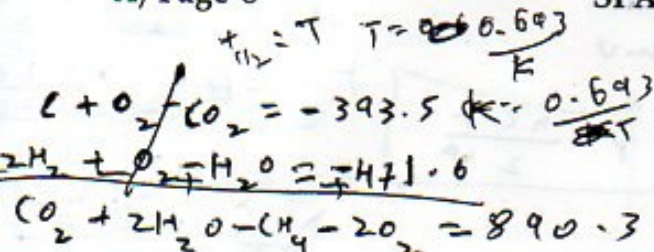 t1/2 = T T = 0.693/K
C + O2 - CO2 = -393.5 K = 0.693/T
2H2 + O2 - H2O = -471.6
CO2 + 2H2O - CH4 - 2O2 = 890.3